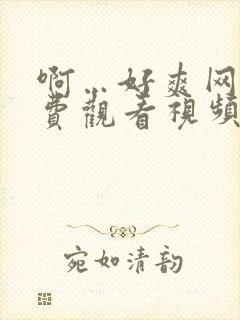 啊…好爽网
费觀看視頻
宛如清韵